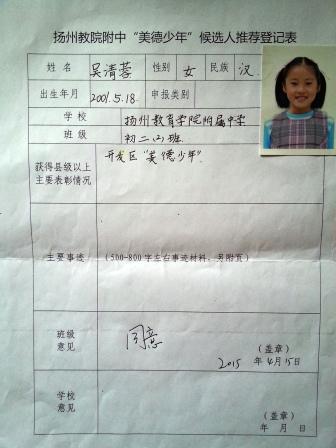 扬州教院附中“美德少年”候选人推荐登记表
姓 名 吴清蓉 性别 女 民族 汉.
出生年月 2001.5.18. 申报类别
学校 扬州教育学院附属中学
班级 初二(2)班.
获得县级以上
主要表彰情况
开发区“美德少年”.
主要事迹 (500-800字左右事迹材料，另附页)
班级
意见
同意
(盖章)
2015 年 4 月 15 日
学校
意见
(盖章)
年 月 日